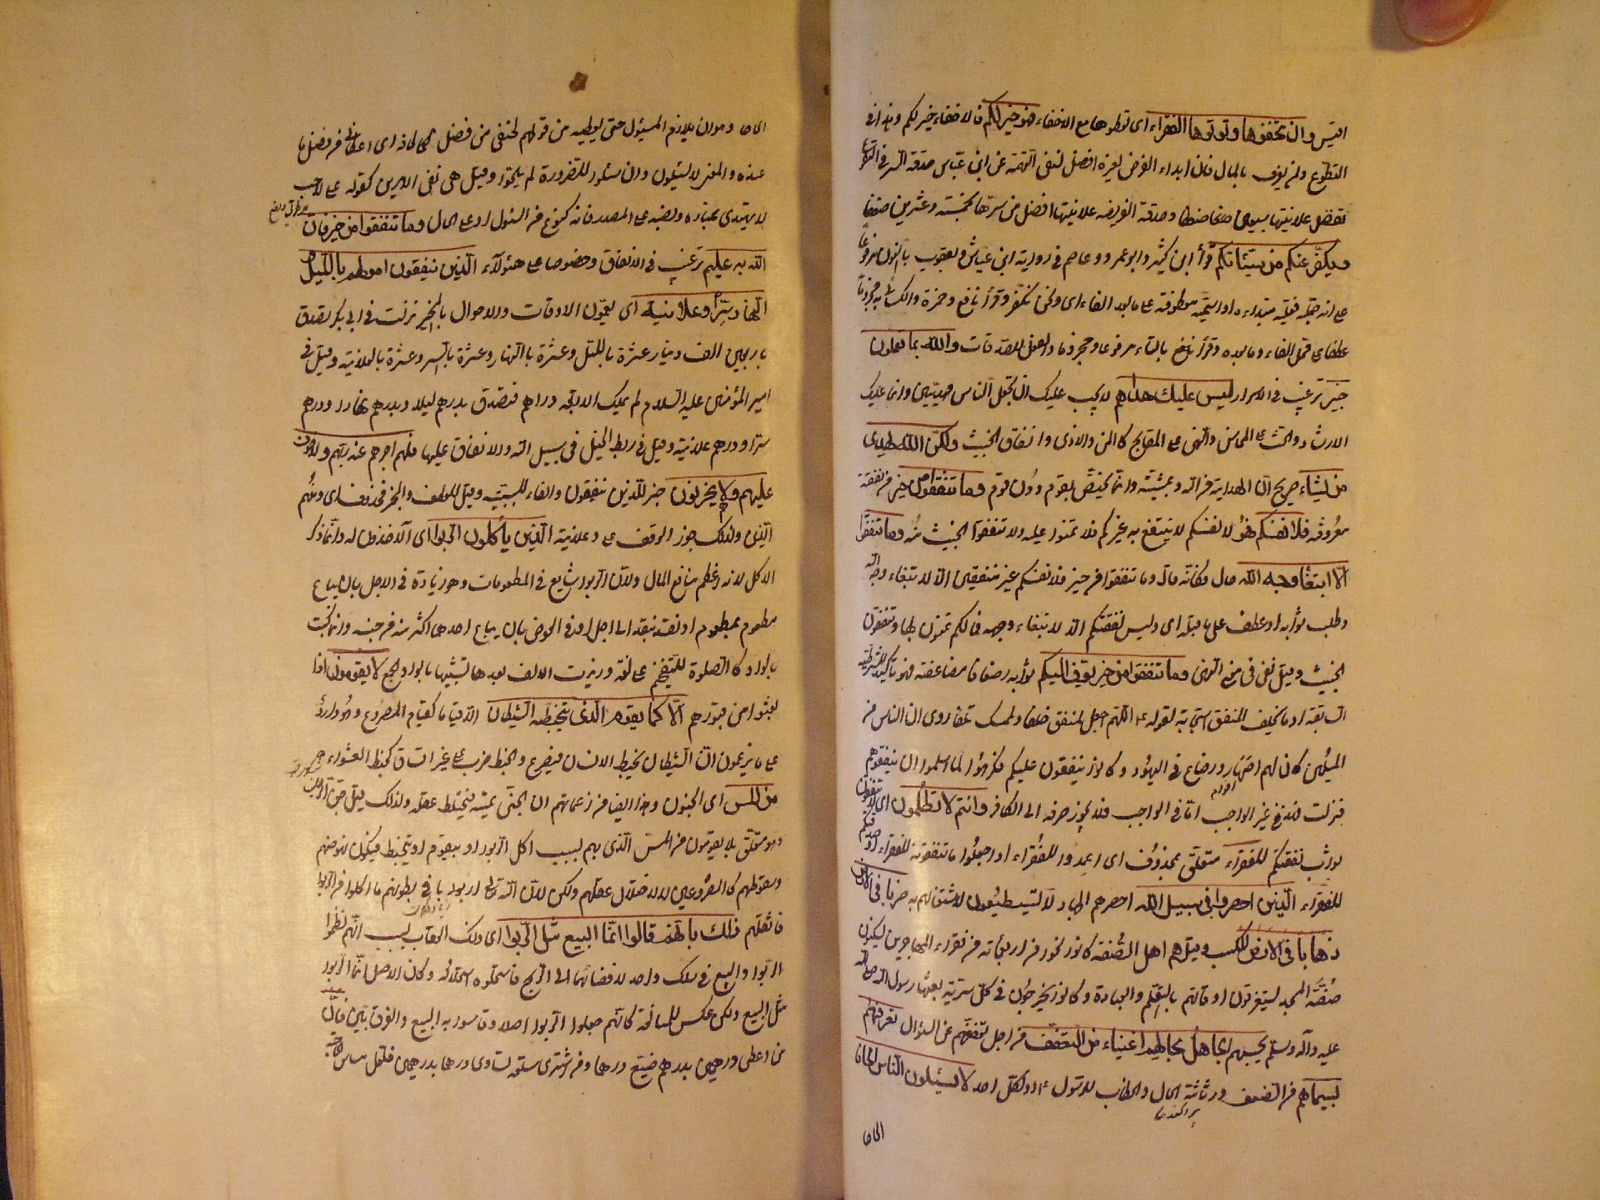 ايتس وان تخفوها وتؤتوها الفقراء اى تعطوها مع الاخفاء فهو خير لكم فالاخفاء خير لكم وهذا فى
التطوع ولمن لم يعرف بالمال فان ابداء الفرض لغيره افضل لنفى التهمة عن ابن عباس صدقة السر فى التطوع
تفضل علانيتها سبعين ضعفا وصدقة الفريضة علانيتها افضل من سرها بخمسة وعشرين ضعفا
ويكفر عنكم من سيئاتكم قرأ ابن كثير وابو عمرو وعاصم فى رواية ابن عياش ويعقوب بالنون مرفوعا
على انه جملة فعلية مبتدأة او اسمية معطوفة على ما بعد الفاء اى ونحن نكفر وقرأ نافع وحمزة والكسائى به مجزوما
على محل الفاء وما بعده وقرأ بالتاء مرفوعا ومجزوما والفعل للصدقات والله بما تعملون
خبير ترغيب فى الاسرار ليس عليك هداهم لا يجب عليك ان تجعل الناس مهديين وانما عليك
الارشاد والحث على المحاسن والنهى عن المقابح كالمن والاذى وانفاق الخبيث ولكن الله يهدى
من يشاء صريح بان الهداية من الله وبمشيته وانما تختص بقوم دون قوم وما تنفقوا من خير من نفقة
معروفة فلانفسكم فهو لانفسكم لا ينتفع به غيركم فلا تمنوا عليه ولا تنفقوا الخبيث منه وما تنفقون
الا ابتغاء وجه الله حال وكانه قال وما تنفقوا من خير فلانفسكم غير منفقين الا لابتغاء وجه الله
وطلب ثوابه او عطف على ما قبله اى وليس نفقتكم الا لابتغاء وجهه فما لكم تمنون بها وتنفقون
الخبيث وقيل نفى فى معنى النهى وما تنفقوا من خير يوف اليكم ثوابه اضعافا مضاعفة فهو تاكيد للشرطية
السابقة او ما يخلف المنفق استجابة لقوله اللهم اجعل لمنفق خلفا ولممسك تلفا روى ان الناس من
المسلمين كان لهم اصهار ورضاع فى اليهود وكانوا ينفقون عليكم فكرهوا لما اسلموا ان ينفقوهم
فنزلت وهذا فى غير الواجب اما فى الواجب فلا يجوز صرفه الى الكافر وانتم لا تظلمون اى لا تنقصون
ثواب نفقتكم للفقراء متعلق بمحذوف اى اعمدوا للفقراء او اجعلوا ما تنفقونه للفقراء او صدقاتكم
للفقراء الذين احصروا فى سبيل الله احصرهم الجهاد لا يستطيعون لاشتغالهم به ضربا فى الارض
ذهابا فى الارض للكسب وقيل هم اهل الصفة كانوا نحوا من اربعمائة من فقراء المهاجرين يسكنون
صفة المسجد يستغرقون اوقاتهم بالتعلم والعبادة وكانوا يخرجون فى كل سرية بعثها رسول الله صلى الله
عليه وآله وسلم يحسبهم الجاهل بحالهم اغنياء من التعفف من اجل تعففهم عن السؤال تعرفهم
بسيماهم من الضعف ورثاثة الحال والخطاب للرسول او لكل احد لا يسئلون الناس الحافا
الحافا
الحافا وهو ان يلازم المسئول حتى يعطيه من قولهم لحفنى من فضل لحافه اى اعطانى من فضل ما
عنده والمعنى لا يسئلون وان سئلوا للضرورة لم يلحوا وقيل هى نفى الامرين كقوله على لاحب
لا يهتدى بمناره ونصبه على المصدر فانه كنوع من السئول او على الحال وما تنفقوا من خير فان
الله به عليم ترغيب فى الانفاق وخصوصا على هئولآء الذين ينفقون اموالهم بالليل
والنهار سرا وعلانية اى يعمون الاوقات والاحوال بالخير نزلت فى ابى بكر تصدق
باربعين الف دينار عشرة بالليل وعشرة بالنهار وعشرة بالسر وعشرة بالعلانية وقيل فى
امير المؤمنين عليه السلام لم يملك الا اربعة دراهم فتصدق بدرهم ليلا وبدرهم نهارا ودرهم
سرا ودرهم علانية وقيل فى ربط الخيل فى سبيل الله والانفاق عليها فلهم اجرهم عند ربهم ولا خوف
عليهم ولا هم يحزنون خبر للذين ينفقون والفاء للسببية وقيل للعطف والخبر محذوف اى ومنهم
الذين ولذلك جوز الوقف على وعلانية الذين ياكلون الربوا اى الآخذون له وانما ذكر
الاكل لانه اعظم منافع المال ولان الربوا شايع فى المطعومات وهو زيادة فى الاجل بان يباع
مطعوم بمطعوم او نقد بنقد الى اجل او فى العوض بان يباع احدهما اكثر منه من جنسه وانما كتب
بالواو كالصلوة للتفخيم على لغة وزيدت الالف بعدها تشبيها بواو الجمع لا يقومون اذا
بعثوا من قبورهم الا كما يقوم الذى يتخبطه الشيطان الا قياما كقيام المصروع وهو وارد
على ما يزعمون ان الشيطان يخبط الانسان فيصرع والخبط ضرب على غير اتساق كخبط العشواء
من المس اى الجنون وهذا ايضا من زعماتهم ان الجنى يمسه فيختلط عقله ولذلك قيل جن الرجل
وهو متعلق بلا يقومون من المس الذى بهم بسبب اكل الربوا او بيقوم او يتخبط فيكون نهوضهم
وسقوطهم كالمصروعين لا لاختلال عقلهم ولكن لان الله تعالى اربى ما فى بطونهم ما اكلوا من الربوا
فاثقلهم ذلك بانهم قالوا انما البيع مثل الربوا اى ذلك العقاب بسبب انهم نظموا
الربوا والبيع فى سلك واحد لافضائهما الى الربح فاستحلوه استحلاله وكان الاصل انما الربوا
مثل البيع ولكن عكس للمبالغة كانهم جعلوا الربوا اصلا وقاسوا به البيع والفرق بين فان
من اعطى درهمين بدرهم ضيع درهما ومن اشترى سلعة تساوى درهما بدرهمين فلعل مساس